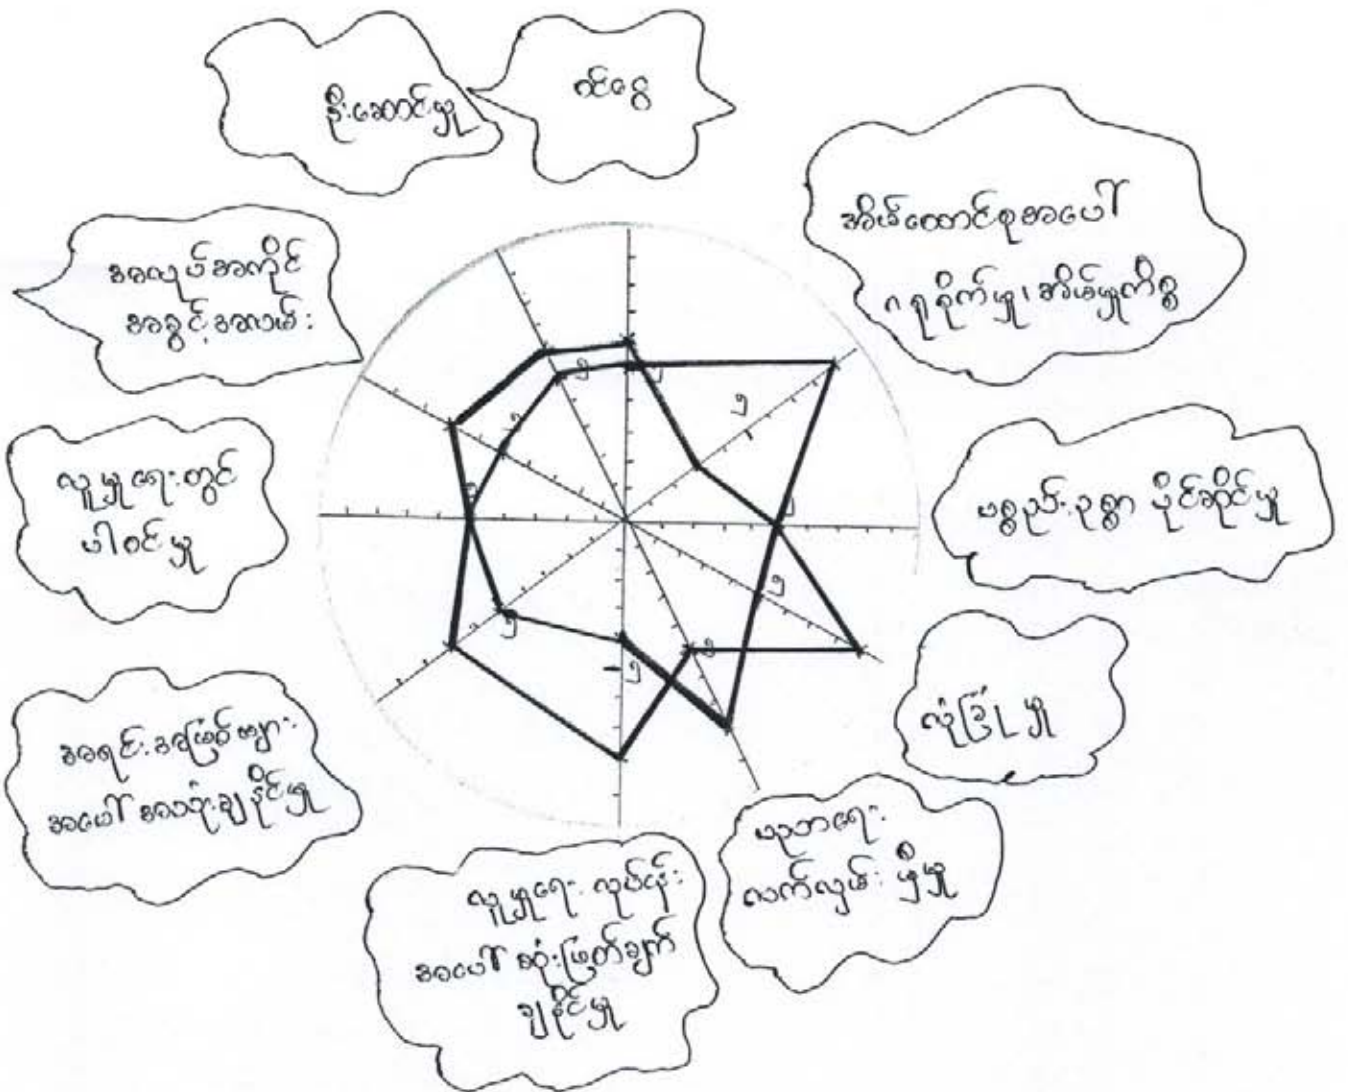 ဦးဆောင်မှု
ဝင်ငွေ
အိမ်ထောင်စုအပေါ်
ဂရုစိုက်မှု၊ အိမ်မှုကိစ္စ
ပစ္စည်းဥစ္စာ ပိုင်ဆိုင်မှု
လုံခြုံမှု
ပညာရေး
လက်လှမ်းမှီမှု
လူမှုရေး လုပ်ငန်း
အပေါ် ဆုံးဖြတ်ချက်
ချနိုင်မှု
အရင်းအမြစ်များ
အပေါ် အသုံးချနိုင်မှု
လူမှုရေးတွင်
ပါဝင်မှု
အလုပ်အကိုင်
အခွင့်အလမ်း
၅
၅
၅
၅
၅
၅
၅
၅
၅
၅